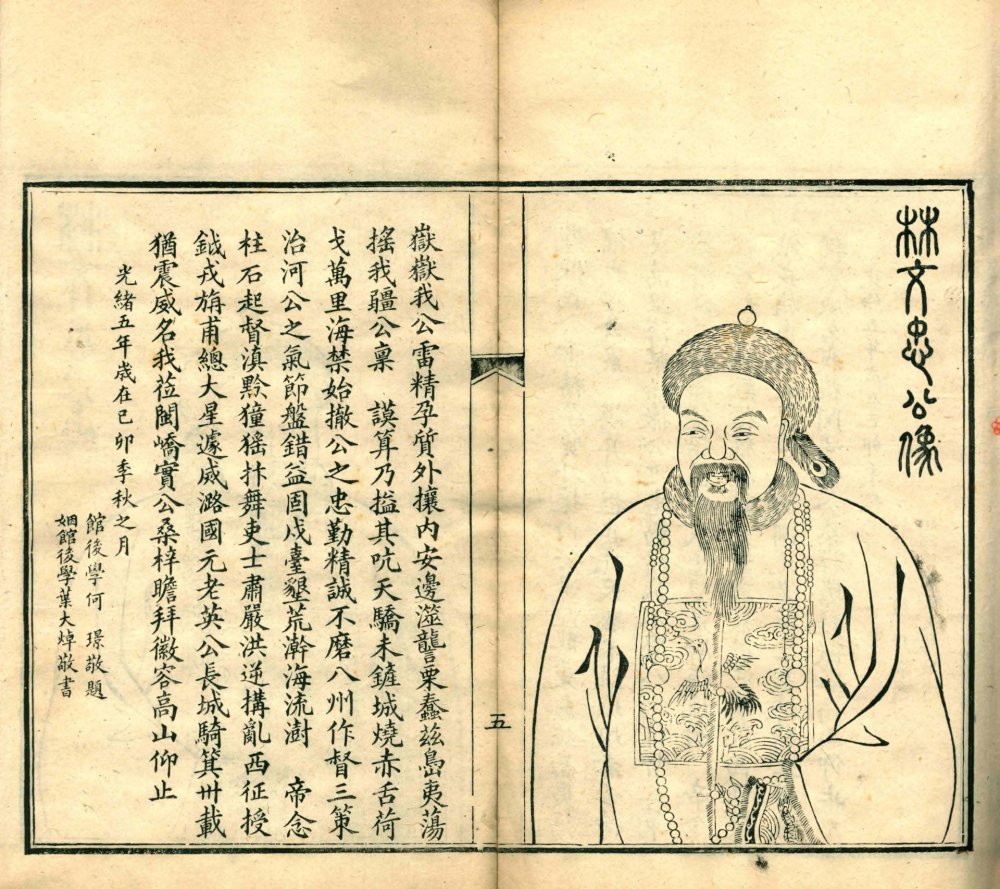 林文忠公像
五
嶽嶽我公雷精孕質外攘内安邊澨讋栗蠢兹島夷蕩
搖我疆公稟 謨算乃搤其吭天驕未鏟城燒赤舌荷
戈萬里海禁始撤公之忠勤精誠不磨八州作督三策
治河公之氣節盤錯益固戍臺墾荒澣海流澍 帝念
柱石起督滇黔獞猺抃舞吏士肅嚴洪逆搆亂西征授
鉞戎旃甫總大星遽威潞國元老英公長城騎箕卅載
猶震威名我莅閩嶠實公桑梓瞻拜徽容高山仰止
光緒五年歲在己卯季秋之月
館後學何 璟敬題
姻館後學葉大焯敬書